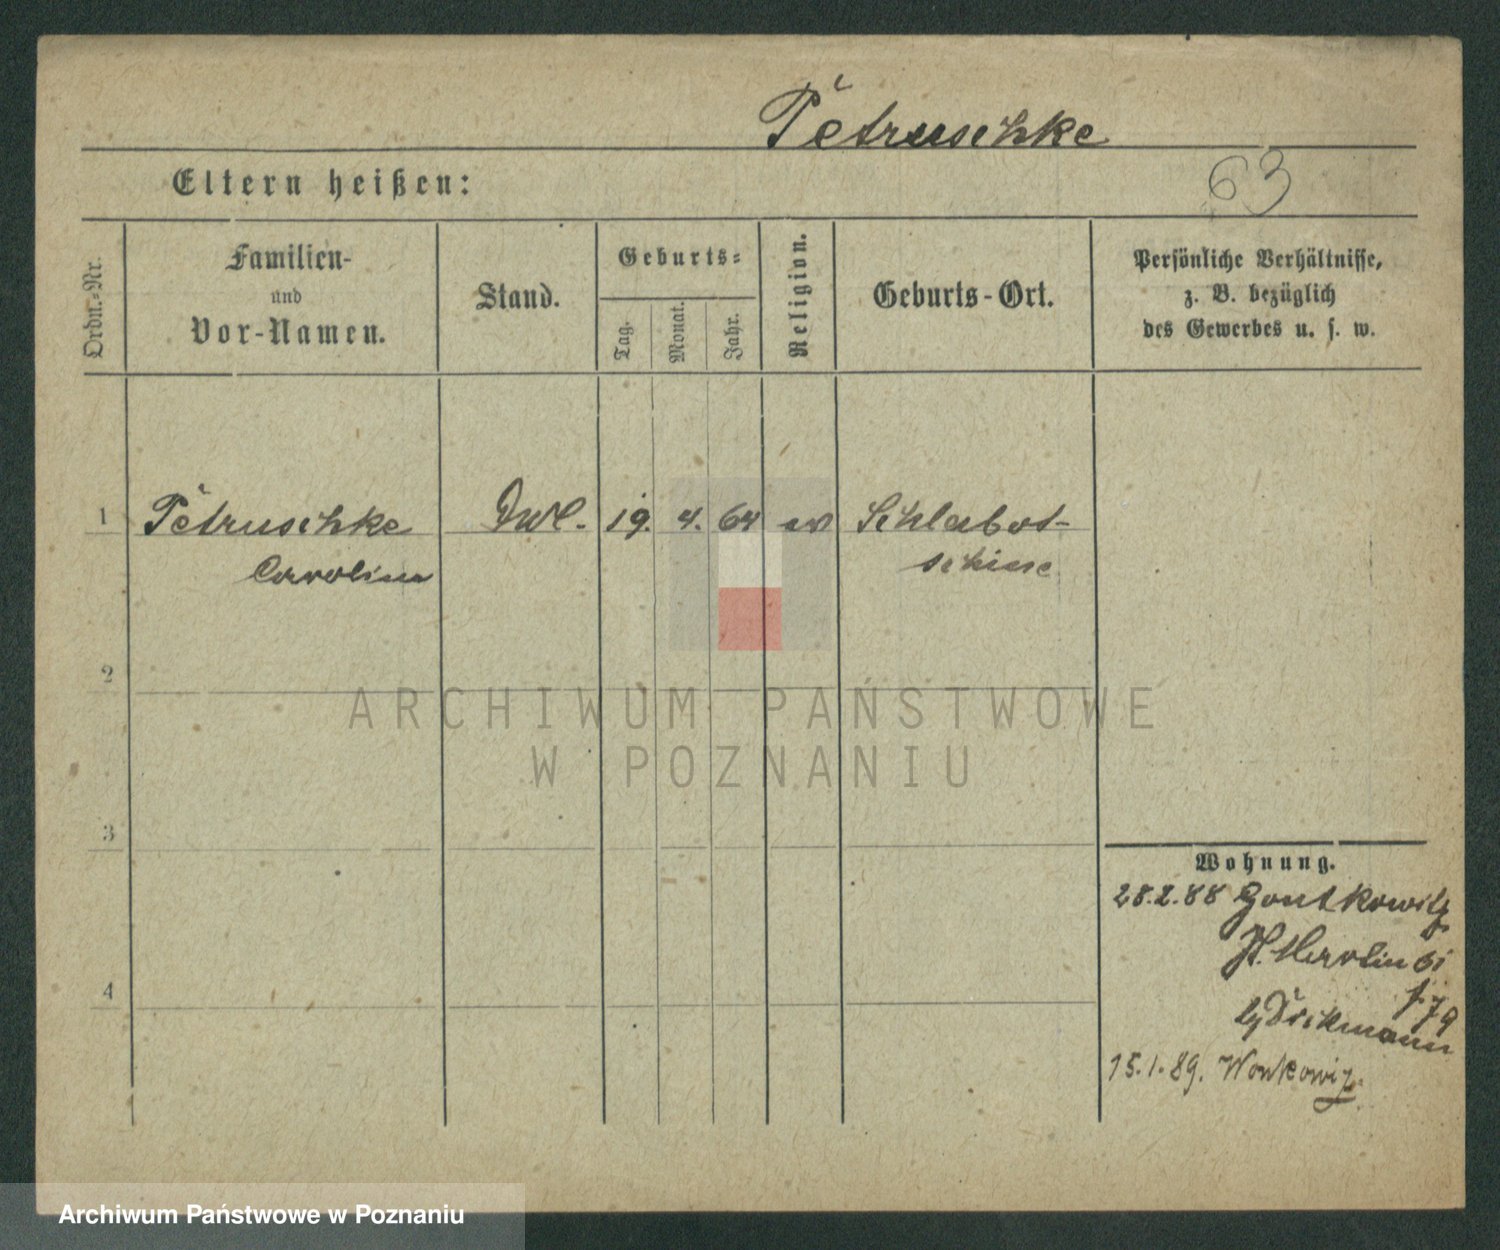 Petruschke
Eltern heißen:
63
Ordn.-Nr.
Familien-
und
Vor-Namen.
Stand.
Geburts-
Tag.
Monat.
Jahr.
Religion.
Geburts-Ort.
Persönliche Verhältnisse,
z. B. bezüglich
des Gewerbes u. s. w.
1 Petruschke 19. 4. 64 ev Schlabot-
Carolina schine
2
3
4
ARCHIWUM PAŃSTWOWE
W POZNANIU
Wohnung.
28.2.88 Gontkowitz
St. Martin 61
f. 79
by Dickmann
15.1.89. Wonkowiz
Archiwum Państwowe w Poznaniu